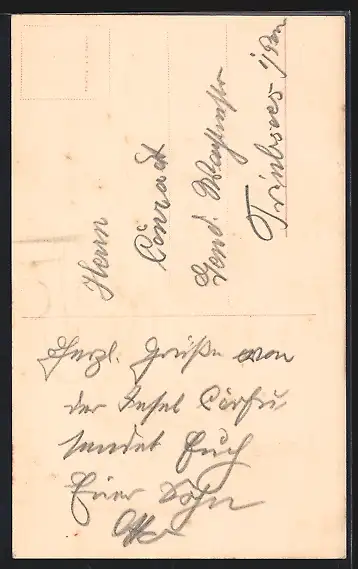 Herrn
Conradt
Gend. Wachtmstr
Triebsees i/Pom
Herzl. Grüße von
der Insel Corfu
sendet Euch
Euer Sohn
Otto